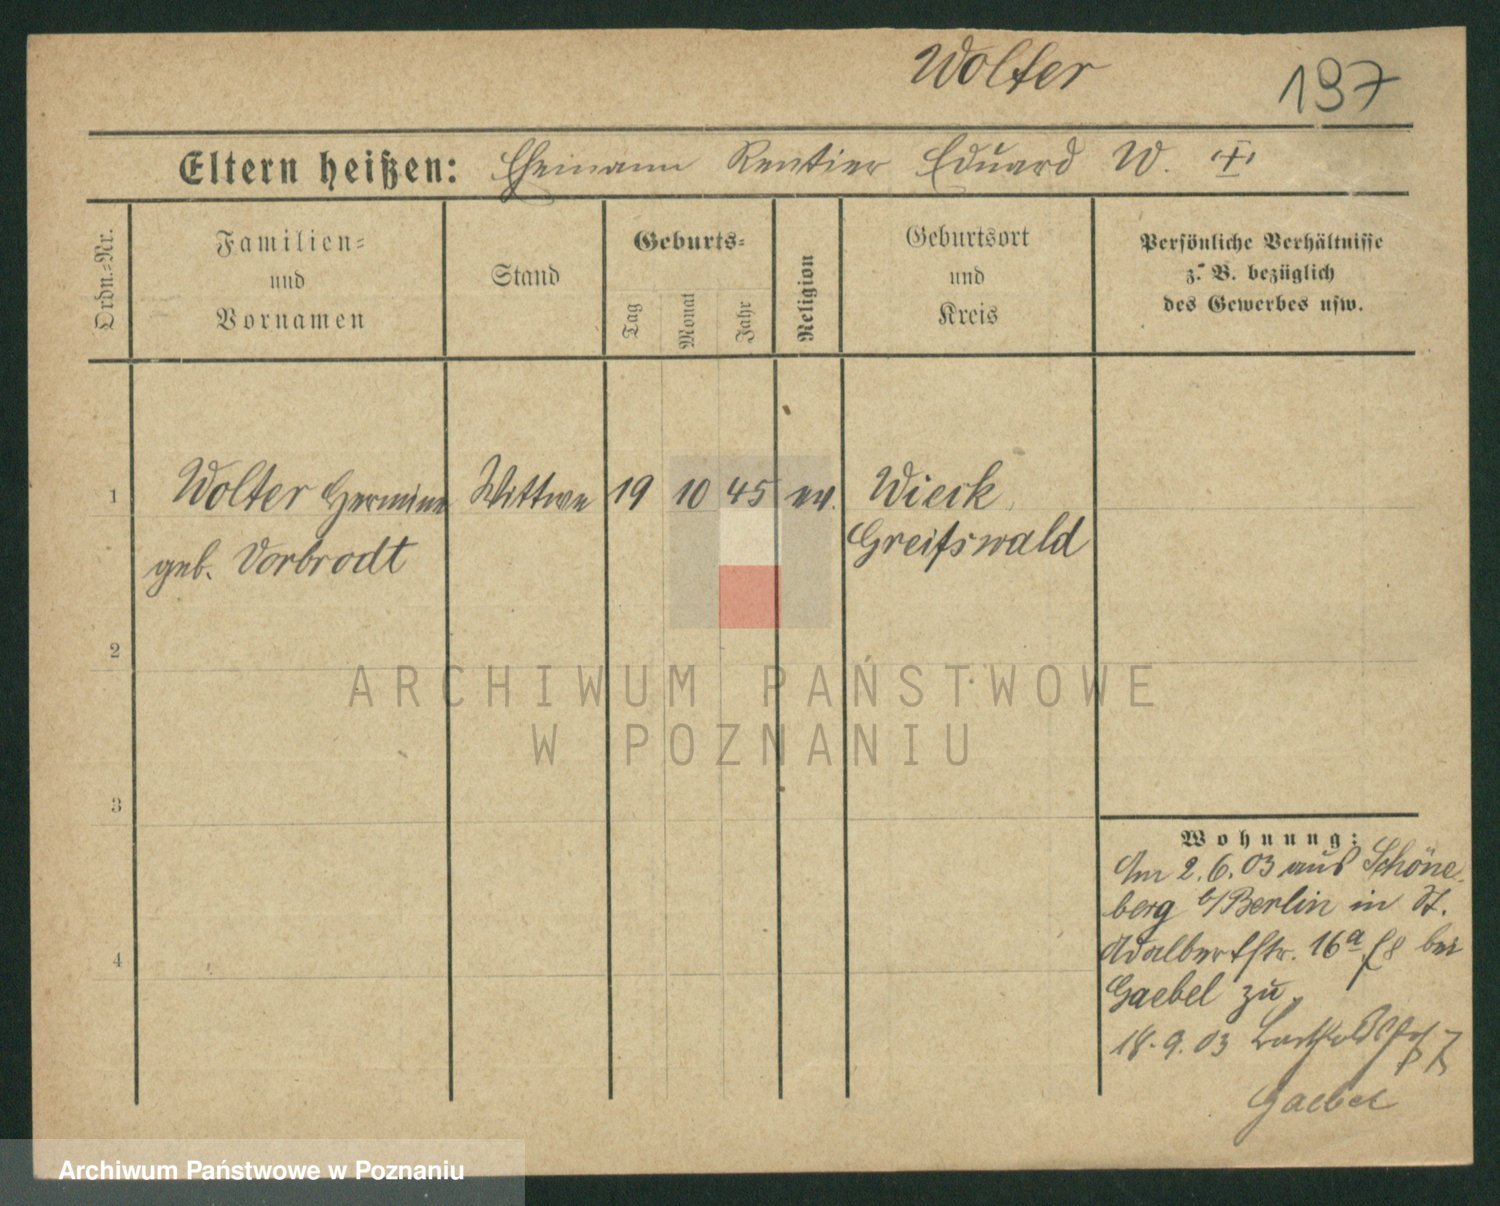 Wolter
197
Eltern heißen: Ehemann Rentier Eduard W. †
Ordn.-Nr.
Familien-
und
Vornamen
Stand
Geburts-
Tag
Monat
Jahr
Religion
Geburtsort
und
Kreis
Persönliche Verhältnisse
z. B. bezüglich
des Gewerbes usw.
1 Wolter Hermine Wittwe 19 10 45 ev. Wieck
geb. Vorbrodt Greifswald
2
ARCHIWUM PAŃSTWOWE
W POZNANIU
3
Wohnung:
Am 2.6.03 aus Schöne-
berg b/Berlin in St.
4
Adalbertstr. 16a bei
Gaebel zu
18.9.03
Gaebel
Archiwum Państwowe w Poznaniu